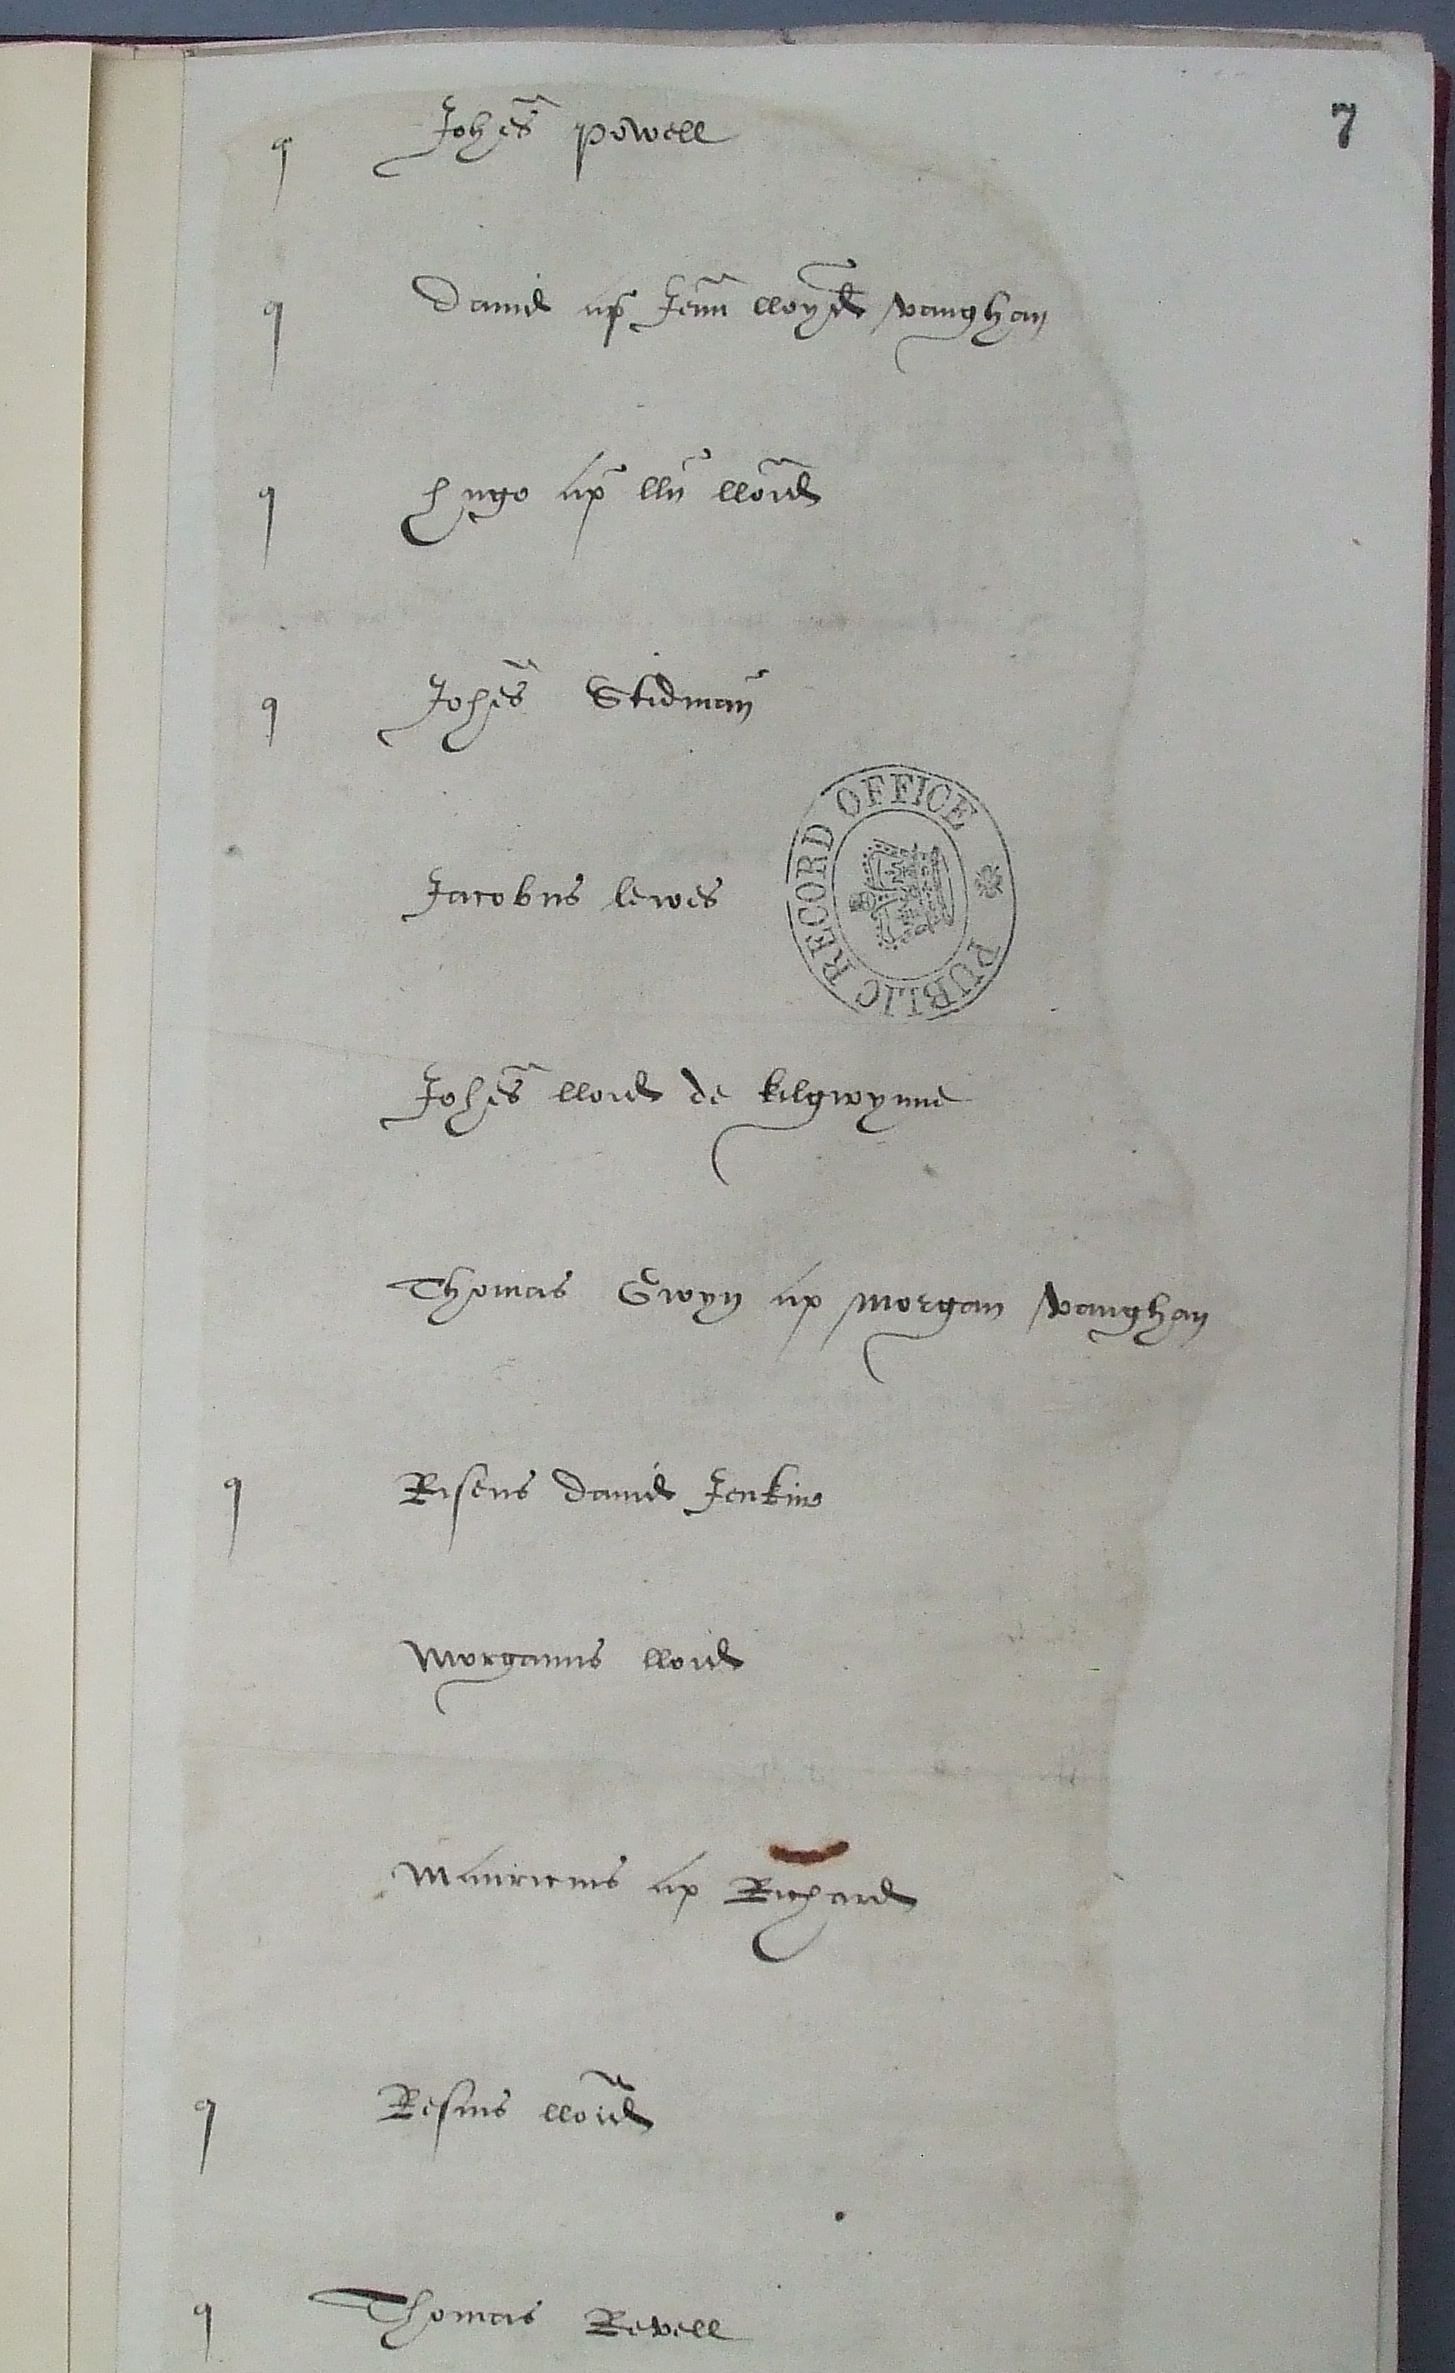 7
q Joh̃es powell
q Dauid ap̃ Jeuñ lloyd̃ vaughan
q hugo ap̃ llñ lloid̃
q Joh̃es Stidmañ
PUBLIC RECORD OFFICE
Jacobus lewes
Joh̃es lloid de kilgwynne
Thomas Gwyn ap morgan vaughan
q Riseus dauid Jenkin
Morganus lloid
Mauricius ap Richard
q Resius lloid̃
q Thomas Revell